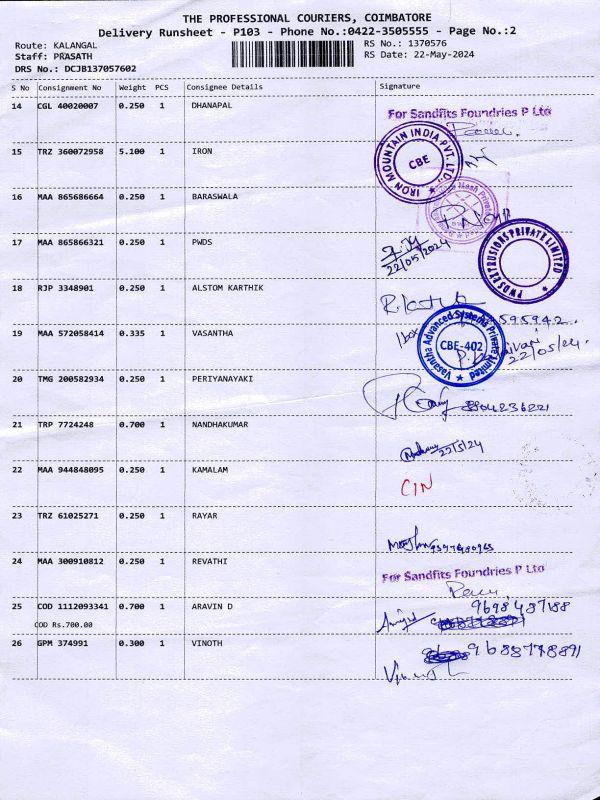 THE PROFESSIONAL COURIERS, COIMBATORE
Delivery Runsheet - P103 - Phone No.:0422-3505555 - Page No.:2
Route: KALANGAL
RS No.: 1370576
Staff: PRASATH
RS Date: 22-May-2024
DRS No.: DCJB137057602
S No Consignment No Weight PCS Consignee Details Signature
14 CGL 40020007 0.250 1 DHANAPAL
For Sandfits Foundries P Ltd
IRON MOUNTAIN INDIA PVT. LTD. CBE
15 TRZ 360072958 5.100 1 IRON
16 MAA 865686664 0.250 1 BARASWALA
17 MAA 865866321 0.250 1 PWDS
22/05/2024
PWDS EXTRUSIONS PRIVATE LIMITED
18 RJP 3348901 0.250 1 ALSTOM KARTHIK
19 MAA 572058414 0.335 1 VASANTHA
1box
Vasantha Advanced Systems Private Limited CBE-402
22/05/24
20 TMG 200582934 0.250 1 PERIYANAYAKI
21 TRP 7724248 0.700 1 NANDHAKUMAR
22/5/24
22 MAA 944848095 0.250 1 KAMALAM
CIN
23 TRZ 61025271 0.250 1 RAYAR
24 MAA 300910812 0.250 1 REVATHI
For Sandfits Foundries P Ltd
25 COD 1112093341 0.700 1 ARAVIN D
9698487188
COD Rs.700.00
26 GPM 374991 0.300 1 VINOTH